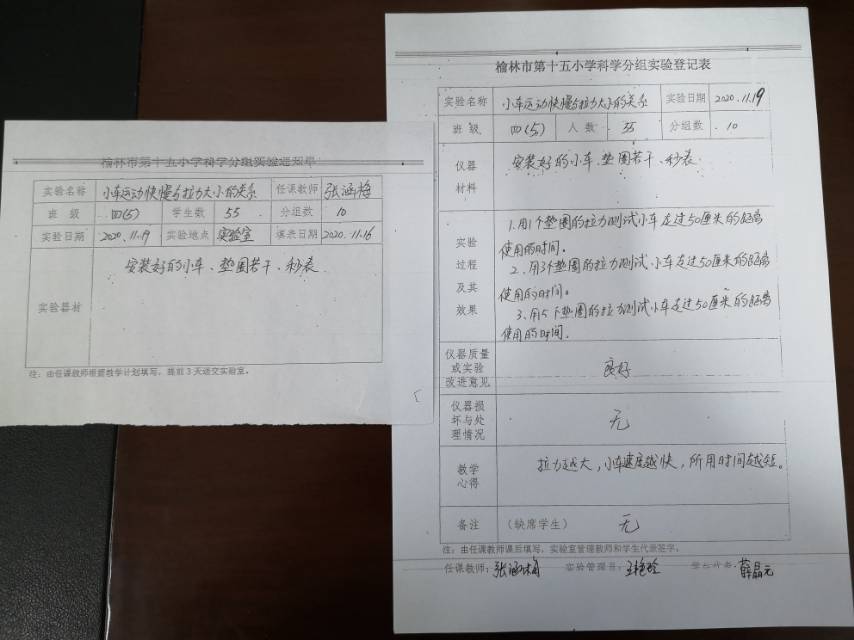 榆林市第十五小学科学分组实验通知单
实验名称 小车运动快慢与拉力大小的关系 任课教师 张涵梅
班 级 四(5) 学生数 55 分组数 10
实验日期 2020.11.19 实验地点 实验室 填表日期 2020.11.16
实验器材 安装好的小车、垫圈若干、秒表
注：由任课教师根据教学计划填写，提前3天送交实验室。
榆林市第十五小学科学分组实验登记表
实验名称 小车运动快慢与拉力大小的关系 实验日期 2020.11.19
班 级 四(5) 人 数 55 分组数 10
仪器
材料
安装好的小车、垫圈若干、秒表
实验
过程
及其
效果
1.用1个垫圈的拉力测试小车走过50厘米的距离
使用的时间。
2.用3个垫圈的拉力测试小车走过50厘米的距离
使用的时间。
3.用5个垫圈的拉力测试小车走过50厘米的距离
使用的时间。
仪器质量
或实验
改进意见
良好
仪器损
坏与处
理情况
无
教学
心得
拉力越大，小车速度越快，所用时间越短。
备注 (缺席学生) 无
注：由任课教师课后填写，实验室管理教师和学生代表签字。
任课教师：张涵梅 实验管理员： 学生代表：薛晶元